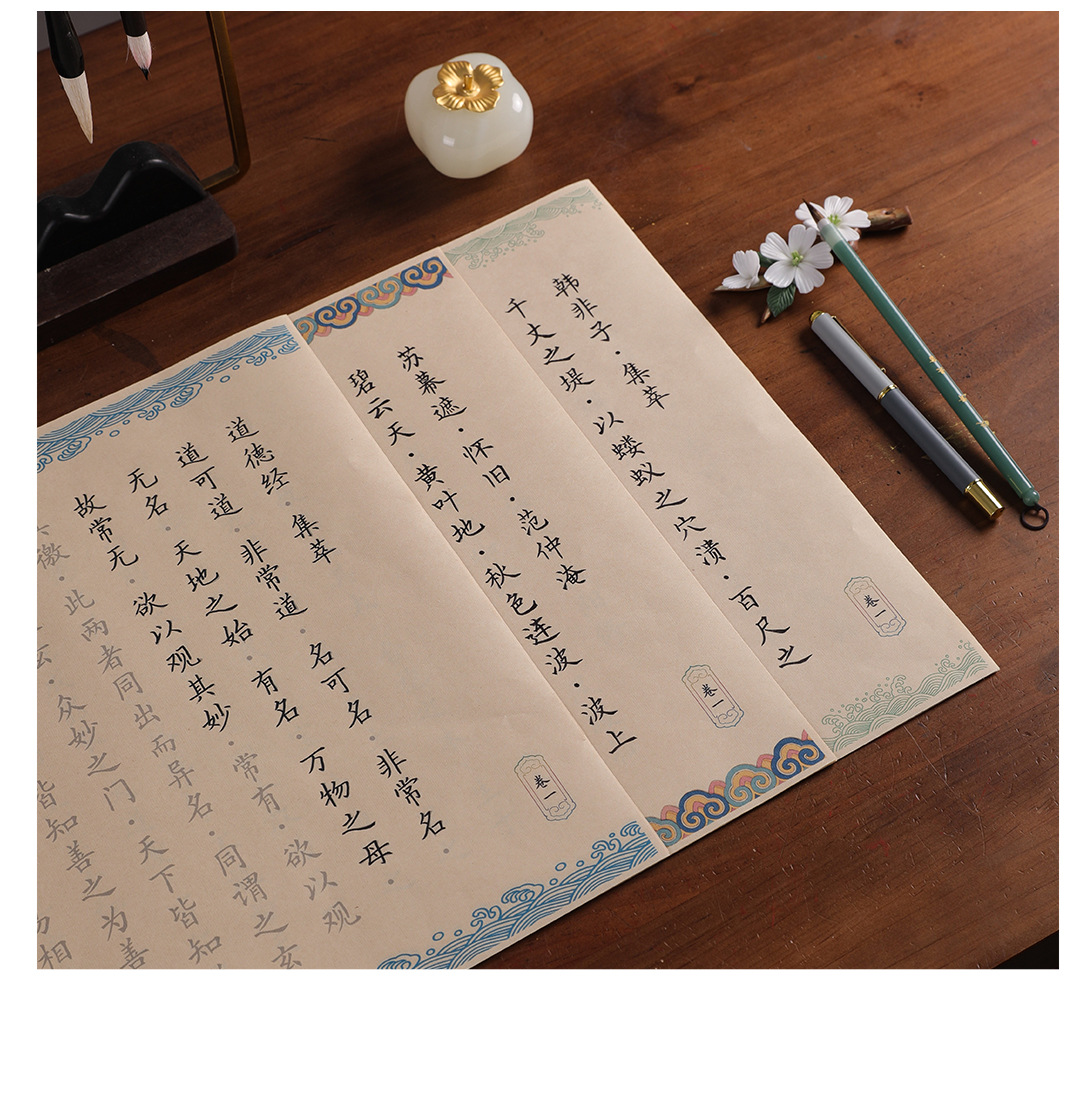 韩非子·集萃
千丈之堤·以蝼蚁之穴溃·百尺之
卷一
苏幕遮·怀旧·范仲淹
碧云天·黄叶地·秋色连波·波上
卷一
道德经·集萃
道可道·非常道·名可名·非常名·
无名·天地之始·有名·万物之母·
故常无·欲以观其妙·常有·欲以观
徼·此两者同出而异名·同谓之玄
众妙之门·天下皆知
皆知善之为善
相
卷一